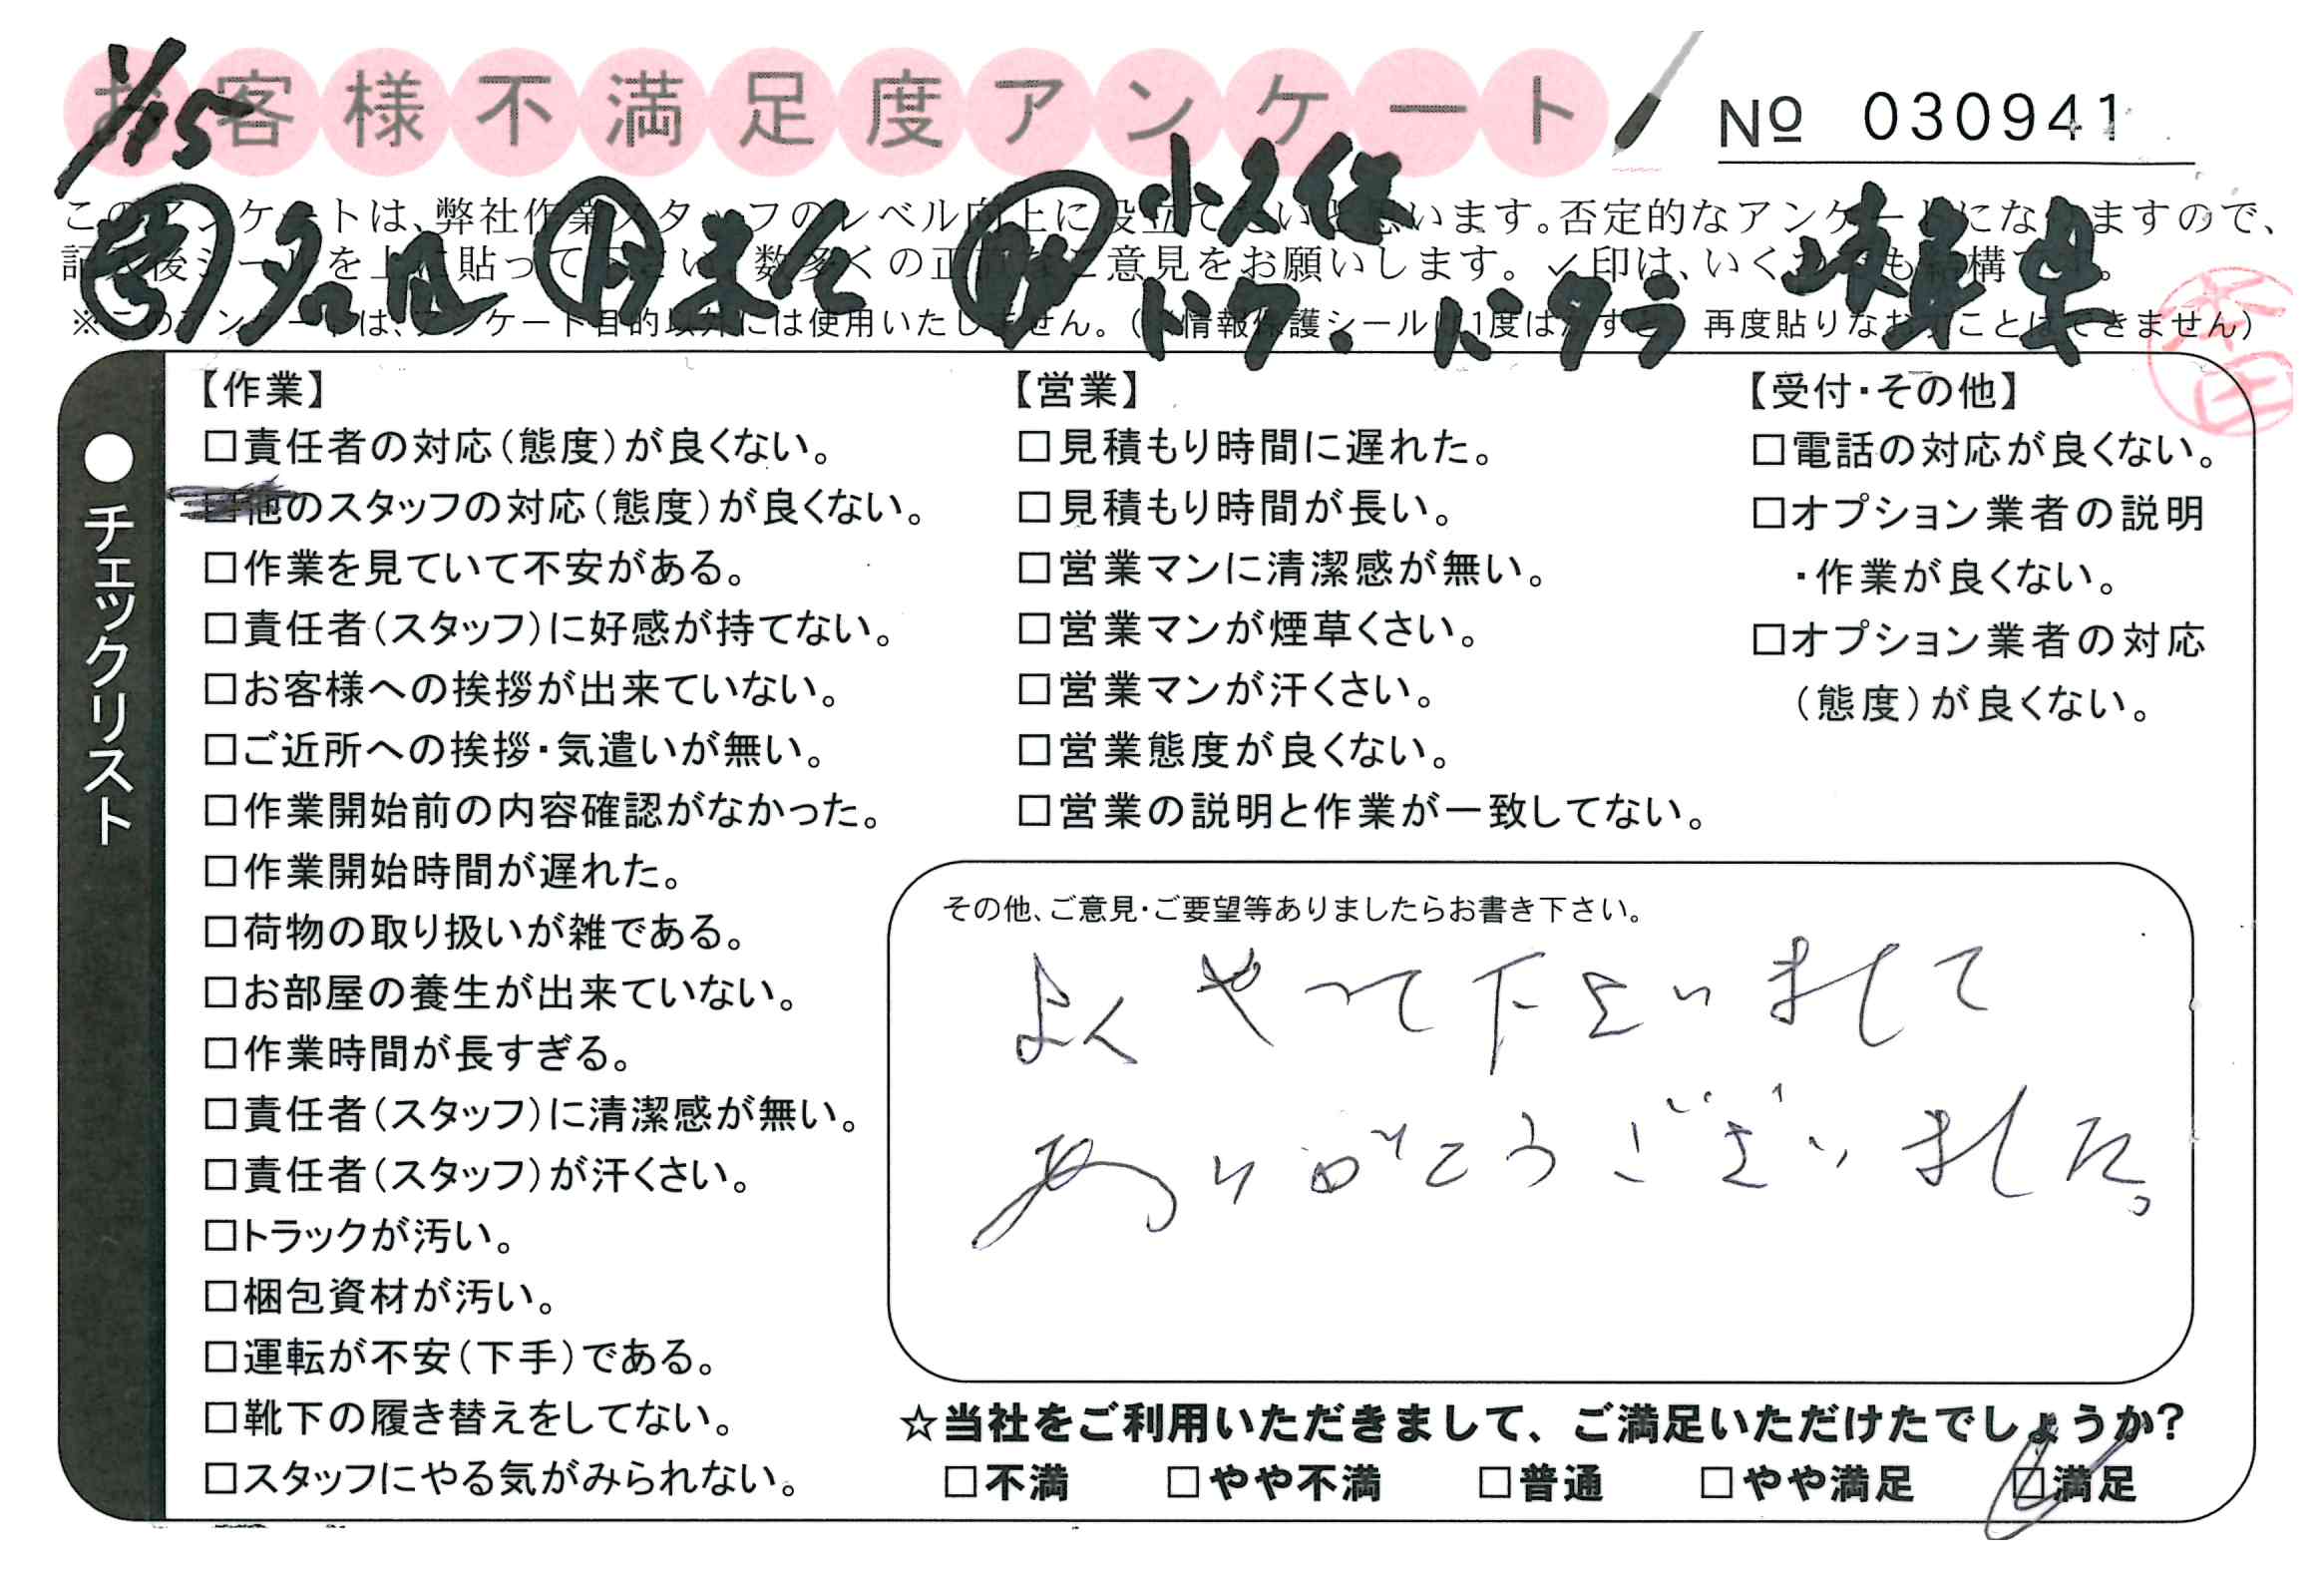 お客様不満足度アンケート
№ 030941
1/15
名児 未公 小久保
ドク、ドタラ
このアンケートは、弊社作業スタッフのレベル向上に役立てたいと思います。否定的なアンケートになりますので、
記入後シールを上に貼って下さい。数多くの正直なご意見をお願いします。✓印は、いくつでも結構です。
※このアンケートは、アンケート目的以外には使用いたしません。(情報保護シールは1度はがすと、再度貼りなおすことはできません)
本田
●チェックリスト
【作業】
□責任者の対応(態度)が良くない。
□他のスタッフの対応(態度)が良くない。
□作業を見ていて不安がある。
□責任者(スタッフ)に好感が持てない。
□お客様への挨拶が出来ていない。
□ご近所への挨拶・気遣いが無い。
□作業開始前の内容確認がなかった。
□作業開始時間が遅れた。
□荷物の取り扱いが雑である。
□お部屋の養生が出来ていない。
□作業時間が長すぎる。
□責任者(スタッフ)に清潔感が無い。
□責任者(スタッフ)が汗くさい。
□トラックが汚い。
□梱包資材が汚い。
□運転が不安(下手)である。
□靴下の履き替えをしてない。
□スタッフにやる気がみられない。
【営業】
□見積もり時間に遅れた。
□見積もり時間が長い。
□営業マンに清潔感が無い。
□営業マンが煙草くさい。
□営業マンが汗くさい。
□営業態度が良くない。
□営業の説明と作業が一致してない。
【受付・その他】
□電話の対応が良くない。
□オプション業者の説明
・作業が良くない。
□オプション業者の対応
(態度)が良くない。
その他、ご意見・ご要望等ありましたらお書き下さい。
よくやって下さいまして
ありがとうございました。
☆当社をご利用いただきまして、ご満足いただけたでしょうか?
□不満 □やや不満 □普通 □やや満足 ☑満足